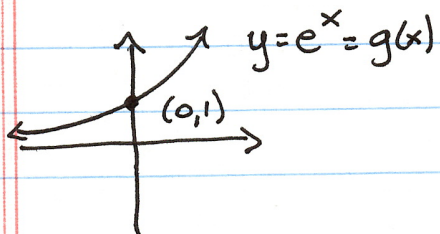 y=eˣ=g(x)
(0,1)